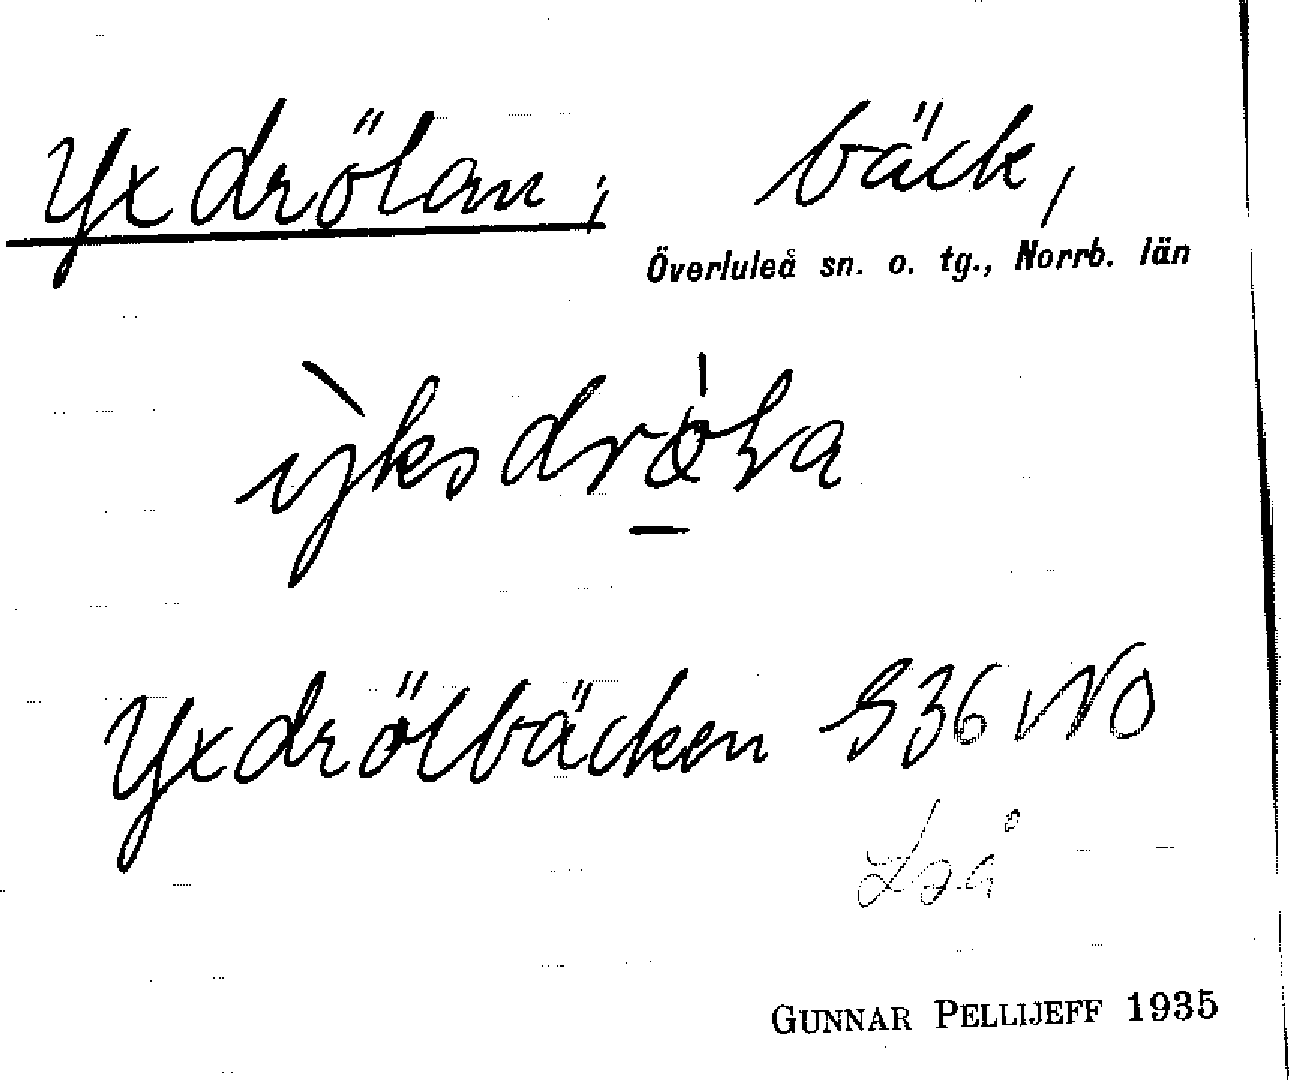 Yxdrölan, bäck,
Överluleå sn. o. tg., Norrb. län
Yxdrölbäcken S36 NO
GUNNAR PELLIJEFF 1935